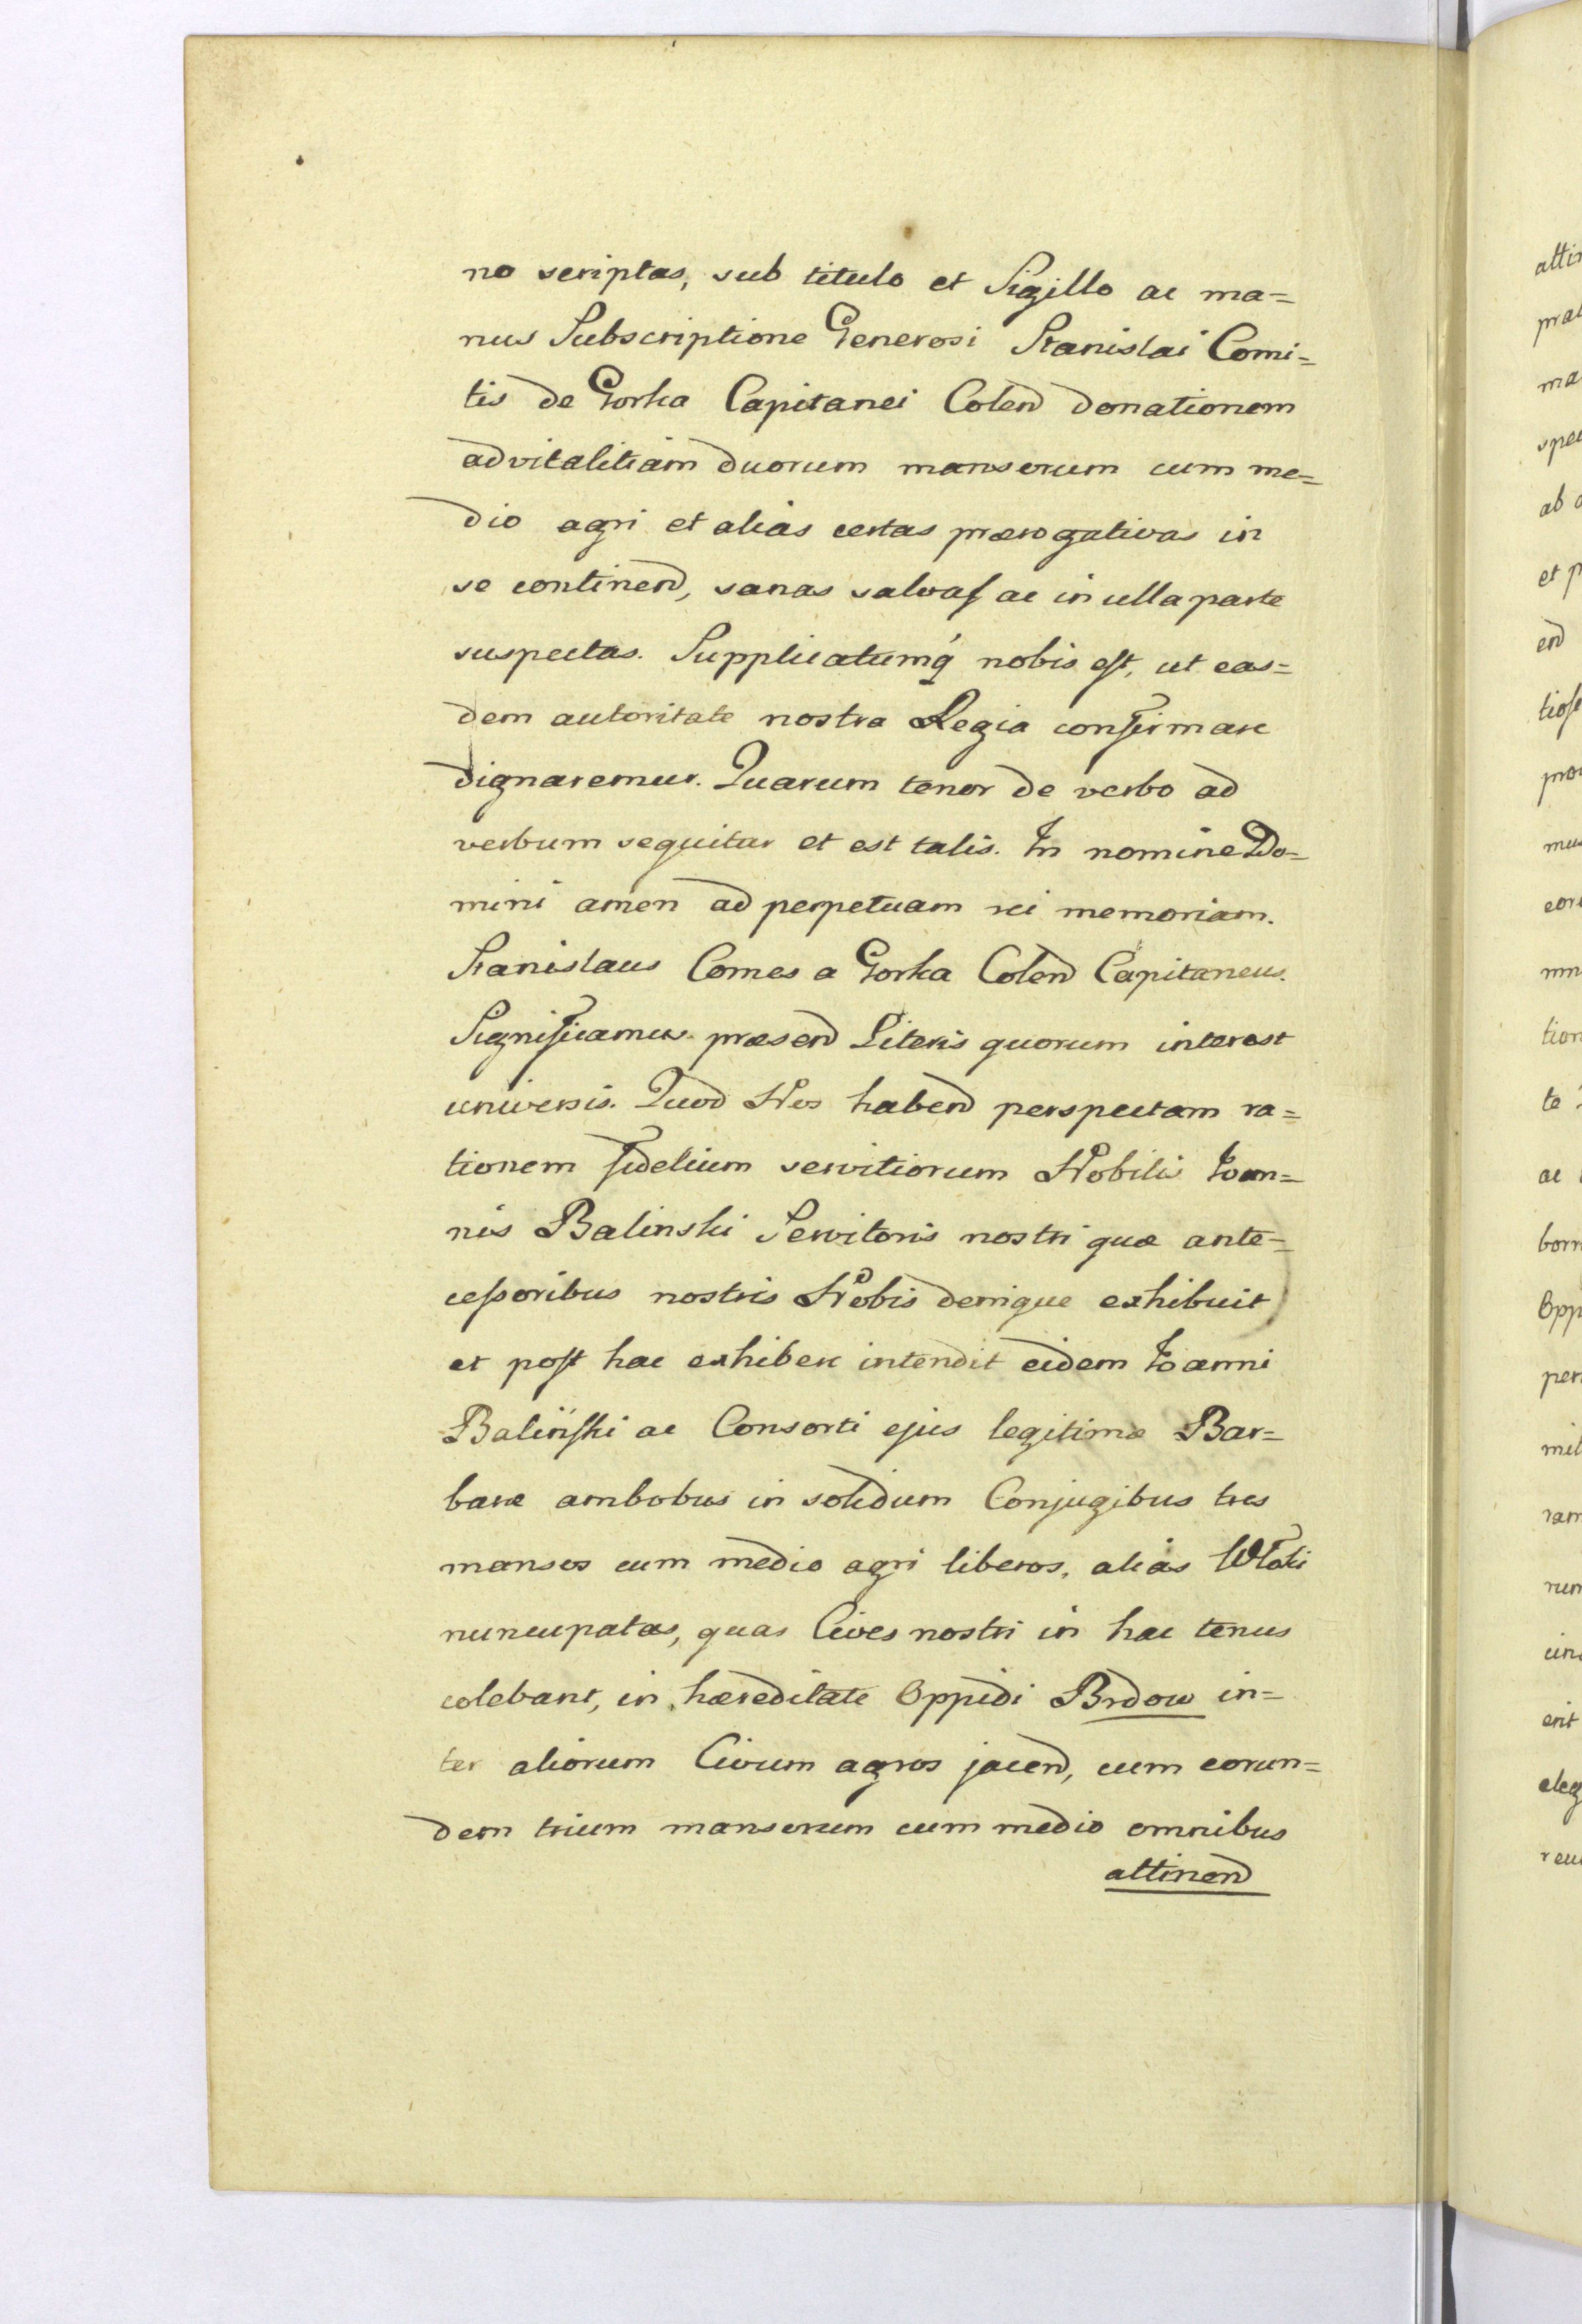 no scriptas, sub titulo et Sigillo ac ma=
nus Subscriptione Generosi Stanislai Comi=
tis de Gorka Capitanei Colend donationem
advitalitiam duorum mansorum cum me=
dio agri et alias certas prærogativas in
se continend, sanas salvas ac in ulla parte
suspectas. Supplicatumq́ nobis est, ut eas=
dem autoritate nostra Regia confirmare
dignaremur. Quarum tenor de verbo ad
verbum sequitur et est talis. In nomine Do=
mini amen ad perpetuam rei memoriam.
Stanislaus Comes a Gorka Colend Capitaneus.
Significamus præsend Literis quorum interest
universis. Quod Nos habend perspectam ra=
tionem fidelium servitiorum Nobilis Ioan=
nis Balinski Servitoris nostri quæ ante=
cessoribus nostris Nobis denique exhibuit
et post hac exhibere intendit eidem Ioanni
Balinski ac Consorti ejus legitimæ Bar=
baræ ambobus in solidum Conjugibus tres
mansos cum medio agri liberos, alias Włoki
nuncupatas, quas Cives nostri in hac tenus
colebant, in hæreditate Oppidi Brdow in=
ter aliorum Civum agros jacend, cum eorun=
dem trium mansorum cum medio omnibus
attinend